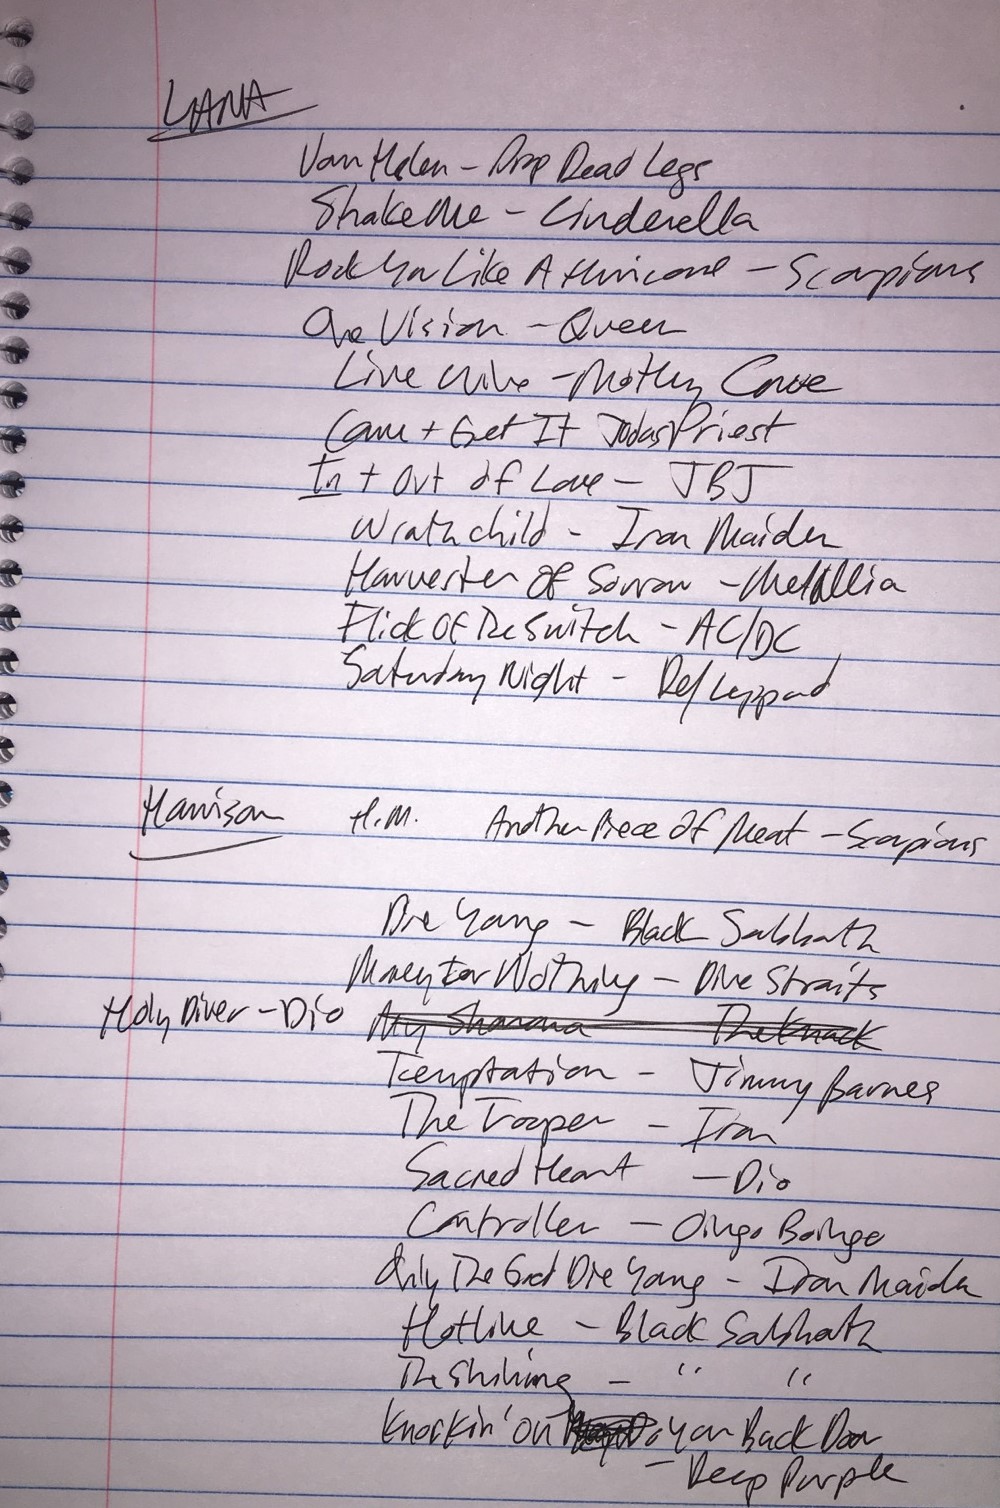 LANA
Van Halen - Drop Dead Legs
Shake Me - Cinderella
Rock You Like A Hurricane - Scorpions
One Vision - Queen
Live Wire - Motley Crue
Come + Get It Judas Priest
In + Out of Love - JBJ
Wrathchild - Iron Maiden
Harvester Of Sorrow - Metallia
Flick Of The Switch - AC/DC
Saturday Night - Def Leppard
Harrison H.M. Another Piece Of Meat - Scorpions
Die Young - Black Sabbath
Money For Nothing - Dire Straits
Holy Diver - Dio My Sharona The Knack
Temptation - Jimmy Barnes
The Trooper - Iron
Sacred Heart - Dio
Controller - Oingo Boingo
Only The Good Die Young - Iron Maiden
Hotline - Black Sabbath
The Shining - " "
Knockin' On Your Back Door
- Deep Purple